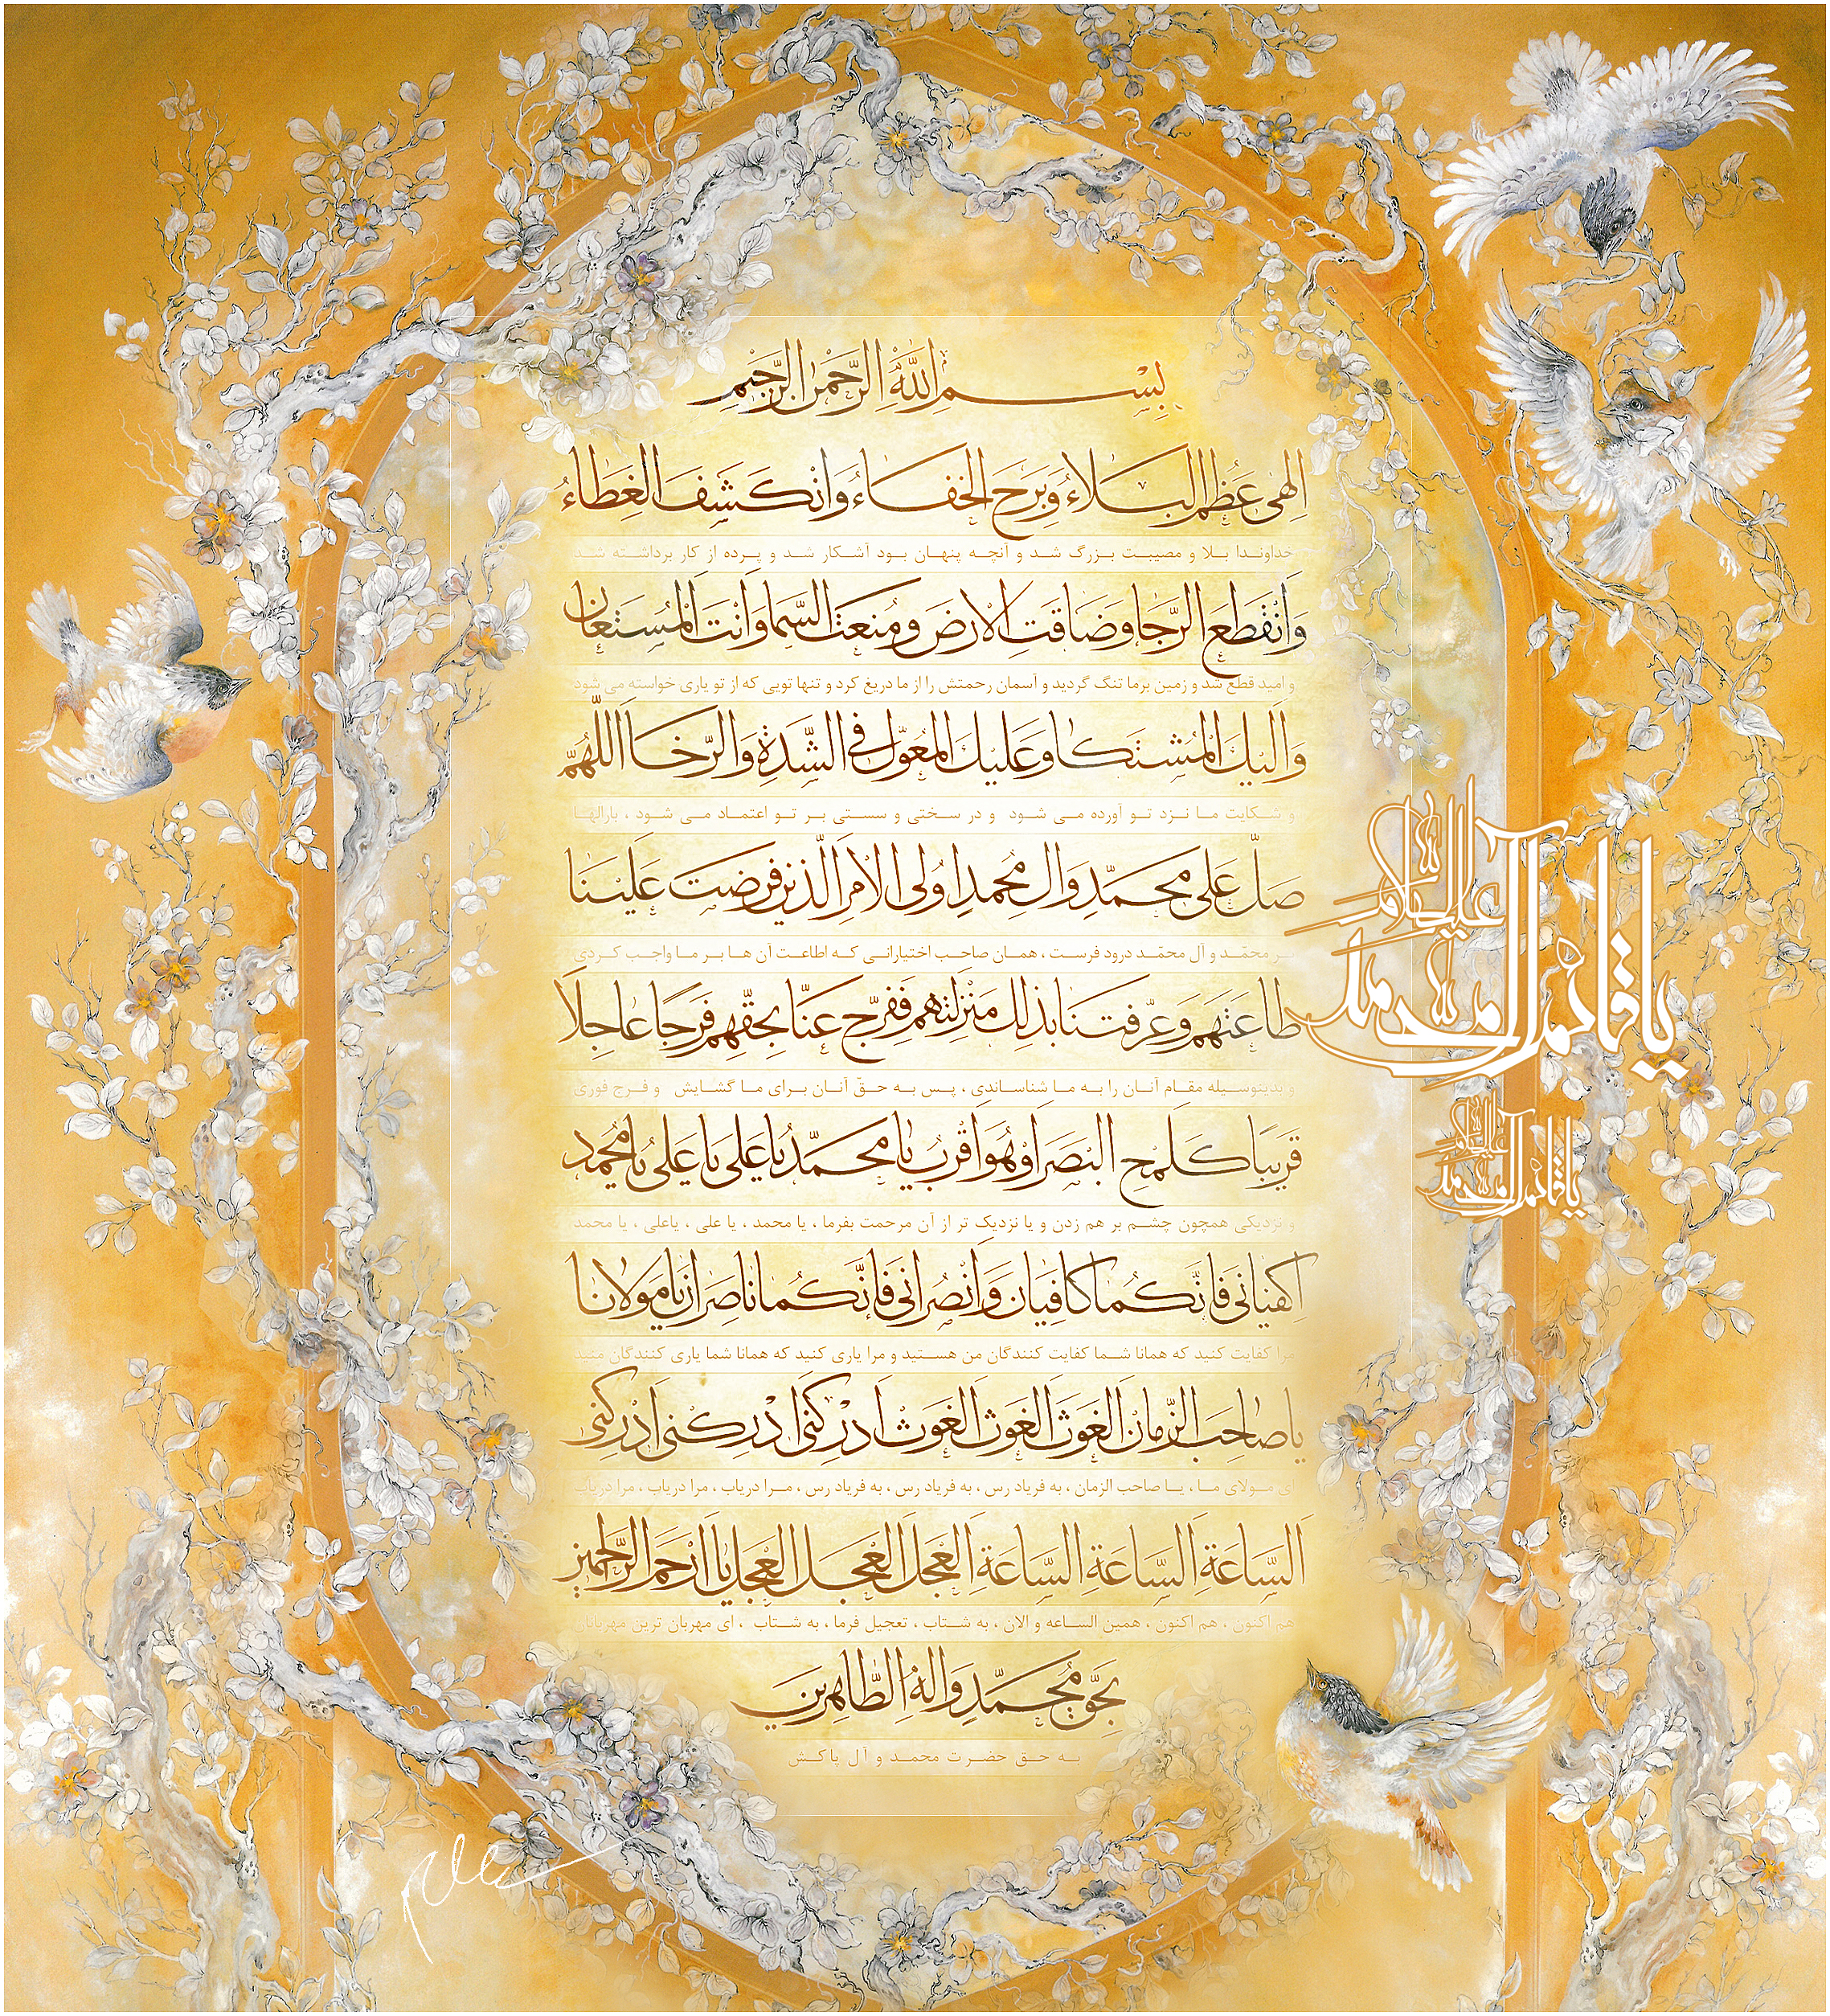 بِسْمِ اللّٰهِ الرَّحْمٰنِ الرَّحِیْمِ
اِلٰهی عَظُمَ البَلاءُ وَ بَرِحَ الخَفاءُ وَانْکَشَفَ الغِطاءُ
خداوندا بلا و مصیبت بزرگ شد و آنچه پنهان بود آشکار شد و پرده از کار برداشته شد
وَانْقَطَعَ الرَّجا وَضَاقَتِ الاَرْضُ وَ مُنِعَتِ السَّما وَاَنْتَ المُسْتَعانُ
و امید قطع شد و زمین بر ما تنگ گردید و آسمان رحمتش را از ما دریغ کرد و تنها تویی که از تو یاری خواسته می شود
وَاِلَیْكَ المُشْتَکا وَعَلَیْكَ المُعَوَّلُ فِی الشِّدَّةِ وَالرَّخا اَللّٰهُمَّ
و شکایت ما نزد تو آورده می شود و در سختی و سستی بر تو اعتماد می شود ، بارالها
صَلِّ عَلی مُحَمَّدٍ وَ الِ مُحَمَّدٍ اُولِی الاَمْرِ الَّذینَ فَرَضْتَ عَلَیْنا
بر محمّد و آل محمّد درود فرست ، همان صاحب اختیارانی که اطاعت آن ها بر ما واجب کردی
طاعَتَهُم وَ عَرَّفْتَنا بِذلِكَ مَنْزِلَتَهُم فَفَرِّج عَنّا بِحَقِّهِم فَرَجًا عاجِلاً
و بدینوسیله مقام آنان را به ما شناساندی ، پس به حقّ آنان برای ما گشایش و فرج فوری
قَریبًا کَلَمْحِ البَصَرِ اَوْ هُوَ اَقْرَبُ یا مُحَمَّدُ یا عَلی یا عَلی یا مُحَمَّد
و نزدیکی همچون چشم بر هم زدن و یا نزدیک تر از آن مرحمت بفرما ، یا محمد ، یا علی ، یاعلی ، یا محمد
اِکْفِیانی فَاِنَّکُما کافِیانِ وَانْصُرانی فَاِنَّکُما ناصِرانِ یا مَولانا
مرا کفایت کنید که همانا شما کفایت کنندگان من هستید و مرا یاری کنید که همانا شما یاری کنندگان منید
یا صاحِبَ الزَّمانِ اَلغَوثَ اَلغَوثَ اَلغَوثَ اَدْرِکْنی اَدْرِکْنی اَدْرِکْنی
ای مولای ما ، یا صاحب الزمان ، به فریاد رس ، به فریاد رس ، به فریاد رس ، مرا دریاب ، مرا دریاب ، مرا دریاب
اَلسّاعَةَ اَلسّاعَةَ اَلسّاعَةَ اَلعَجَل اَلعَجَل اَلعَجَل یا اَرْحَمَ الرّاحِمین
هم اکنون ، هم اکنون ، همین الساعه و الان ، به شتاب ، تعجیل فرما ، به شتاب ، ای مهربان ترین مهربانان
بِحَقِّ مُحَمَّدٍ وَالِهِ الطّاهِرینَ
به حق حضرت محمد و آل پاکش
یا قائم آل محمد
علیه السلام
یا قائم آل محمد
علیه السلام